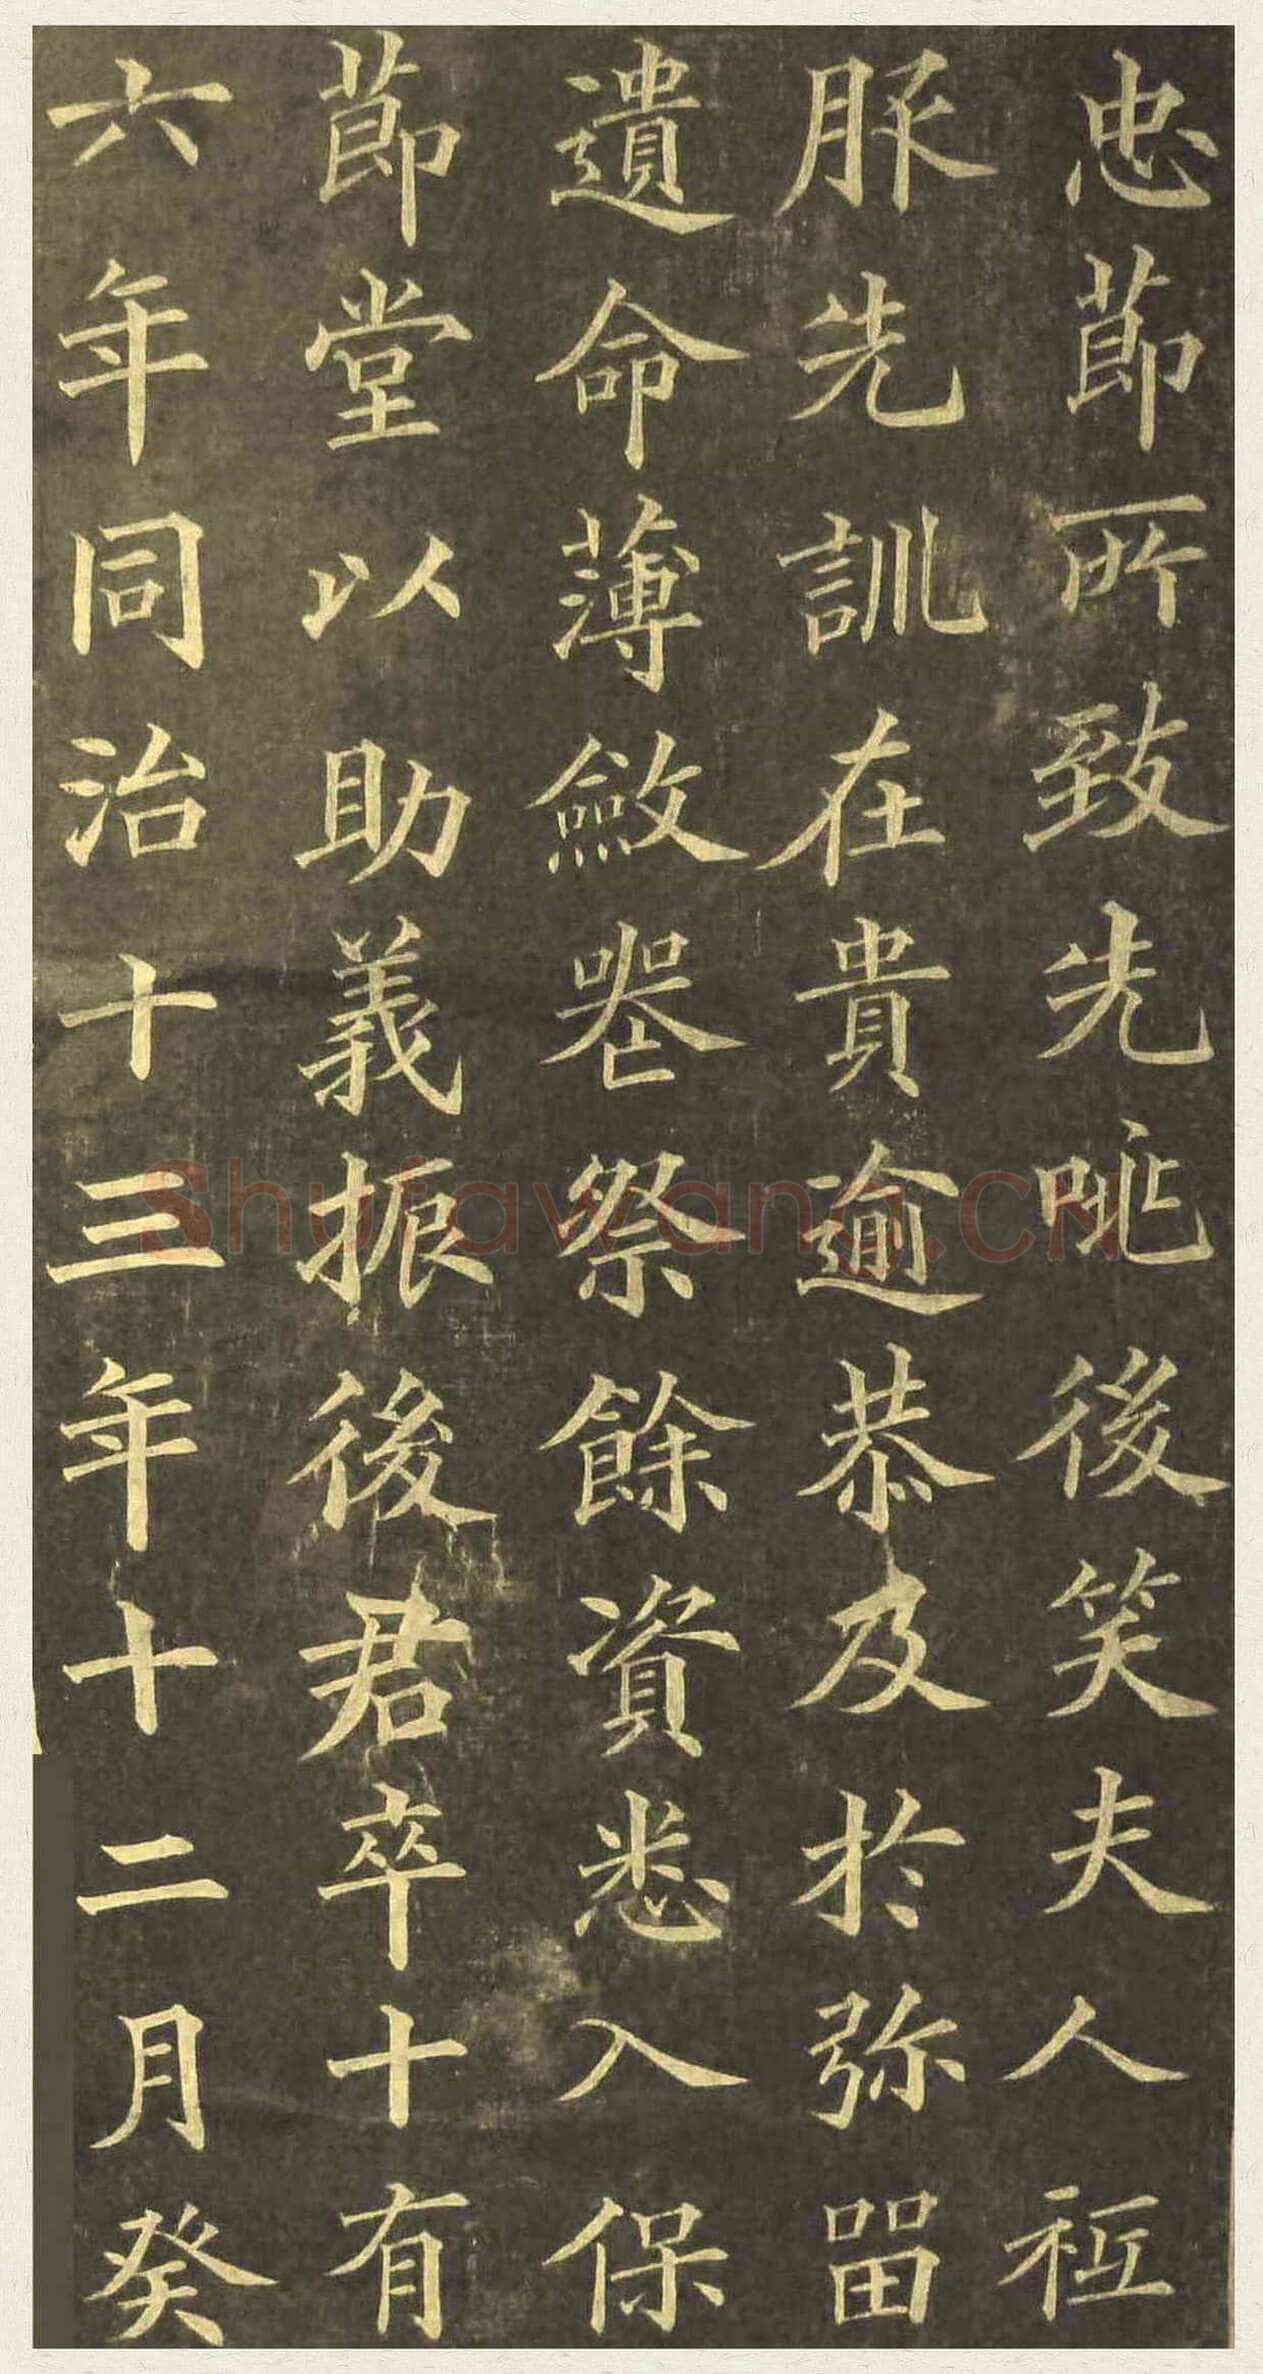 忠莭所致先咷後笑夫人祗
服先訓在貴逾恭及於弥留
遺命薄斂喪祭餘資悉入保
莭堂以助義振後君卒十有
六年同治十三年十二月癸
Shufawang.CN